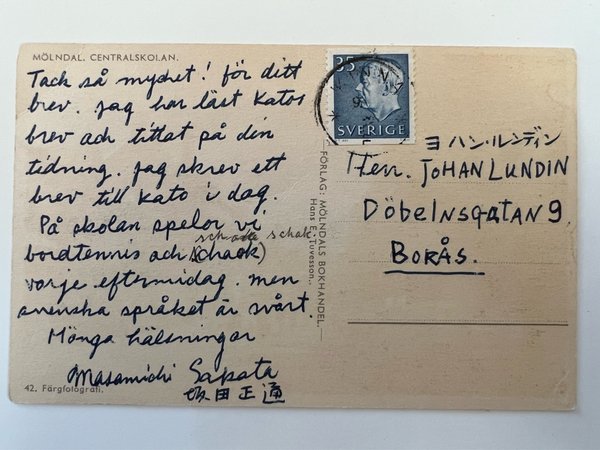 MÖLNDAL. CENTRALSKOLAN.
Tack så myshet! för ditt
brev. jag har läst Katos
brev och tittat på din
tidning. jag skrev ett
brev till Kato i dag.
På skolan spelor vi
schack schak
bordtennis och (schack)
varje eftermidag. men
svenska språket är svårt.
Mönga hälsningar
Masamichi Sakata
坂田正通
42. Färgfotografi.
FÖRLAG: MÖLNDALS BOKHANDEL.
Hans E. Tuvesson.
35
SVERIGE
ヨハン・ルンディン
Herr. JOHAN LUNDIN
Döbelnsgatan 9.
BORÅS.